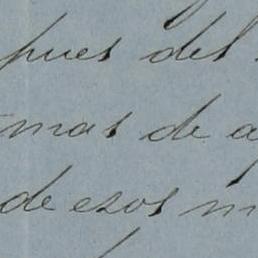 pues del
mas de a
de esos m